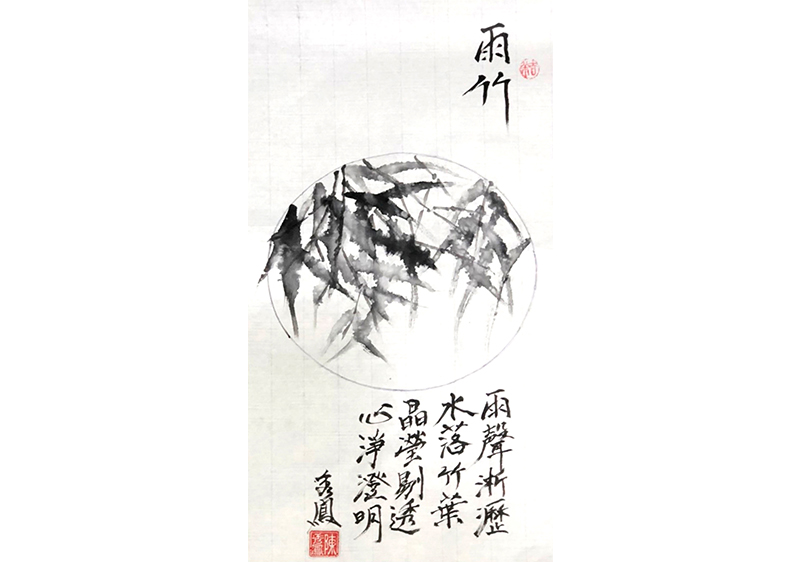 雨竹
雨聲淅瀝
水落竹葉
晶瑩剔透
心淨澄明
秀鳳